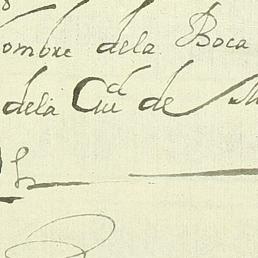 ombre dela Boca
dela Ciud de